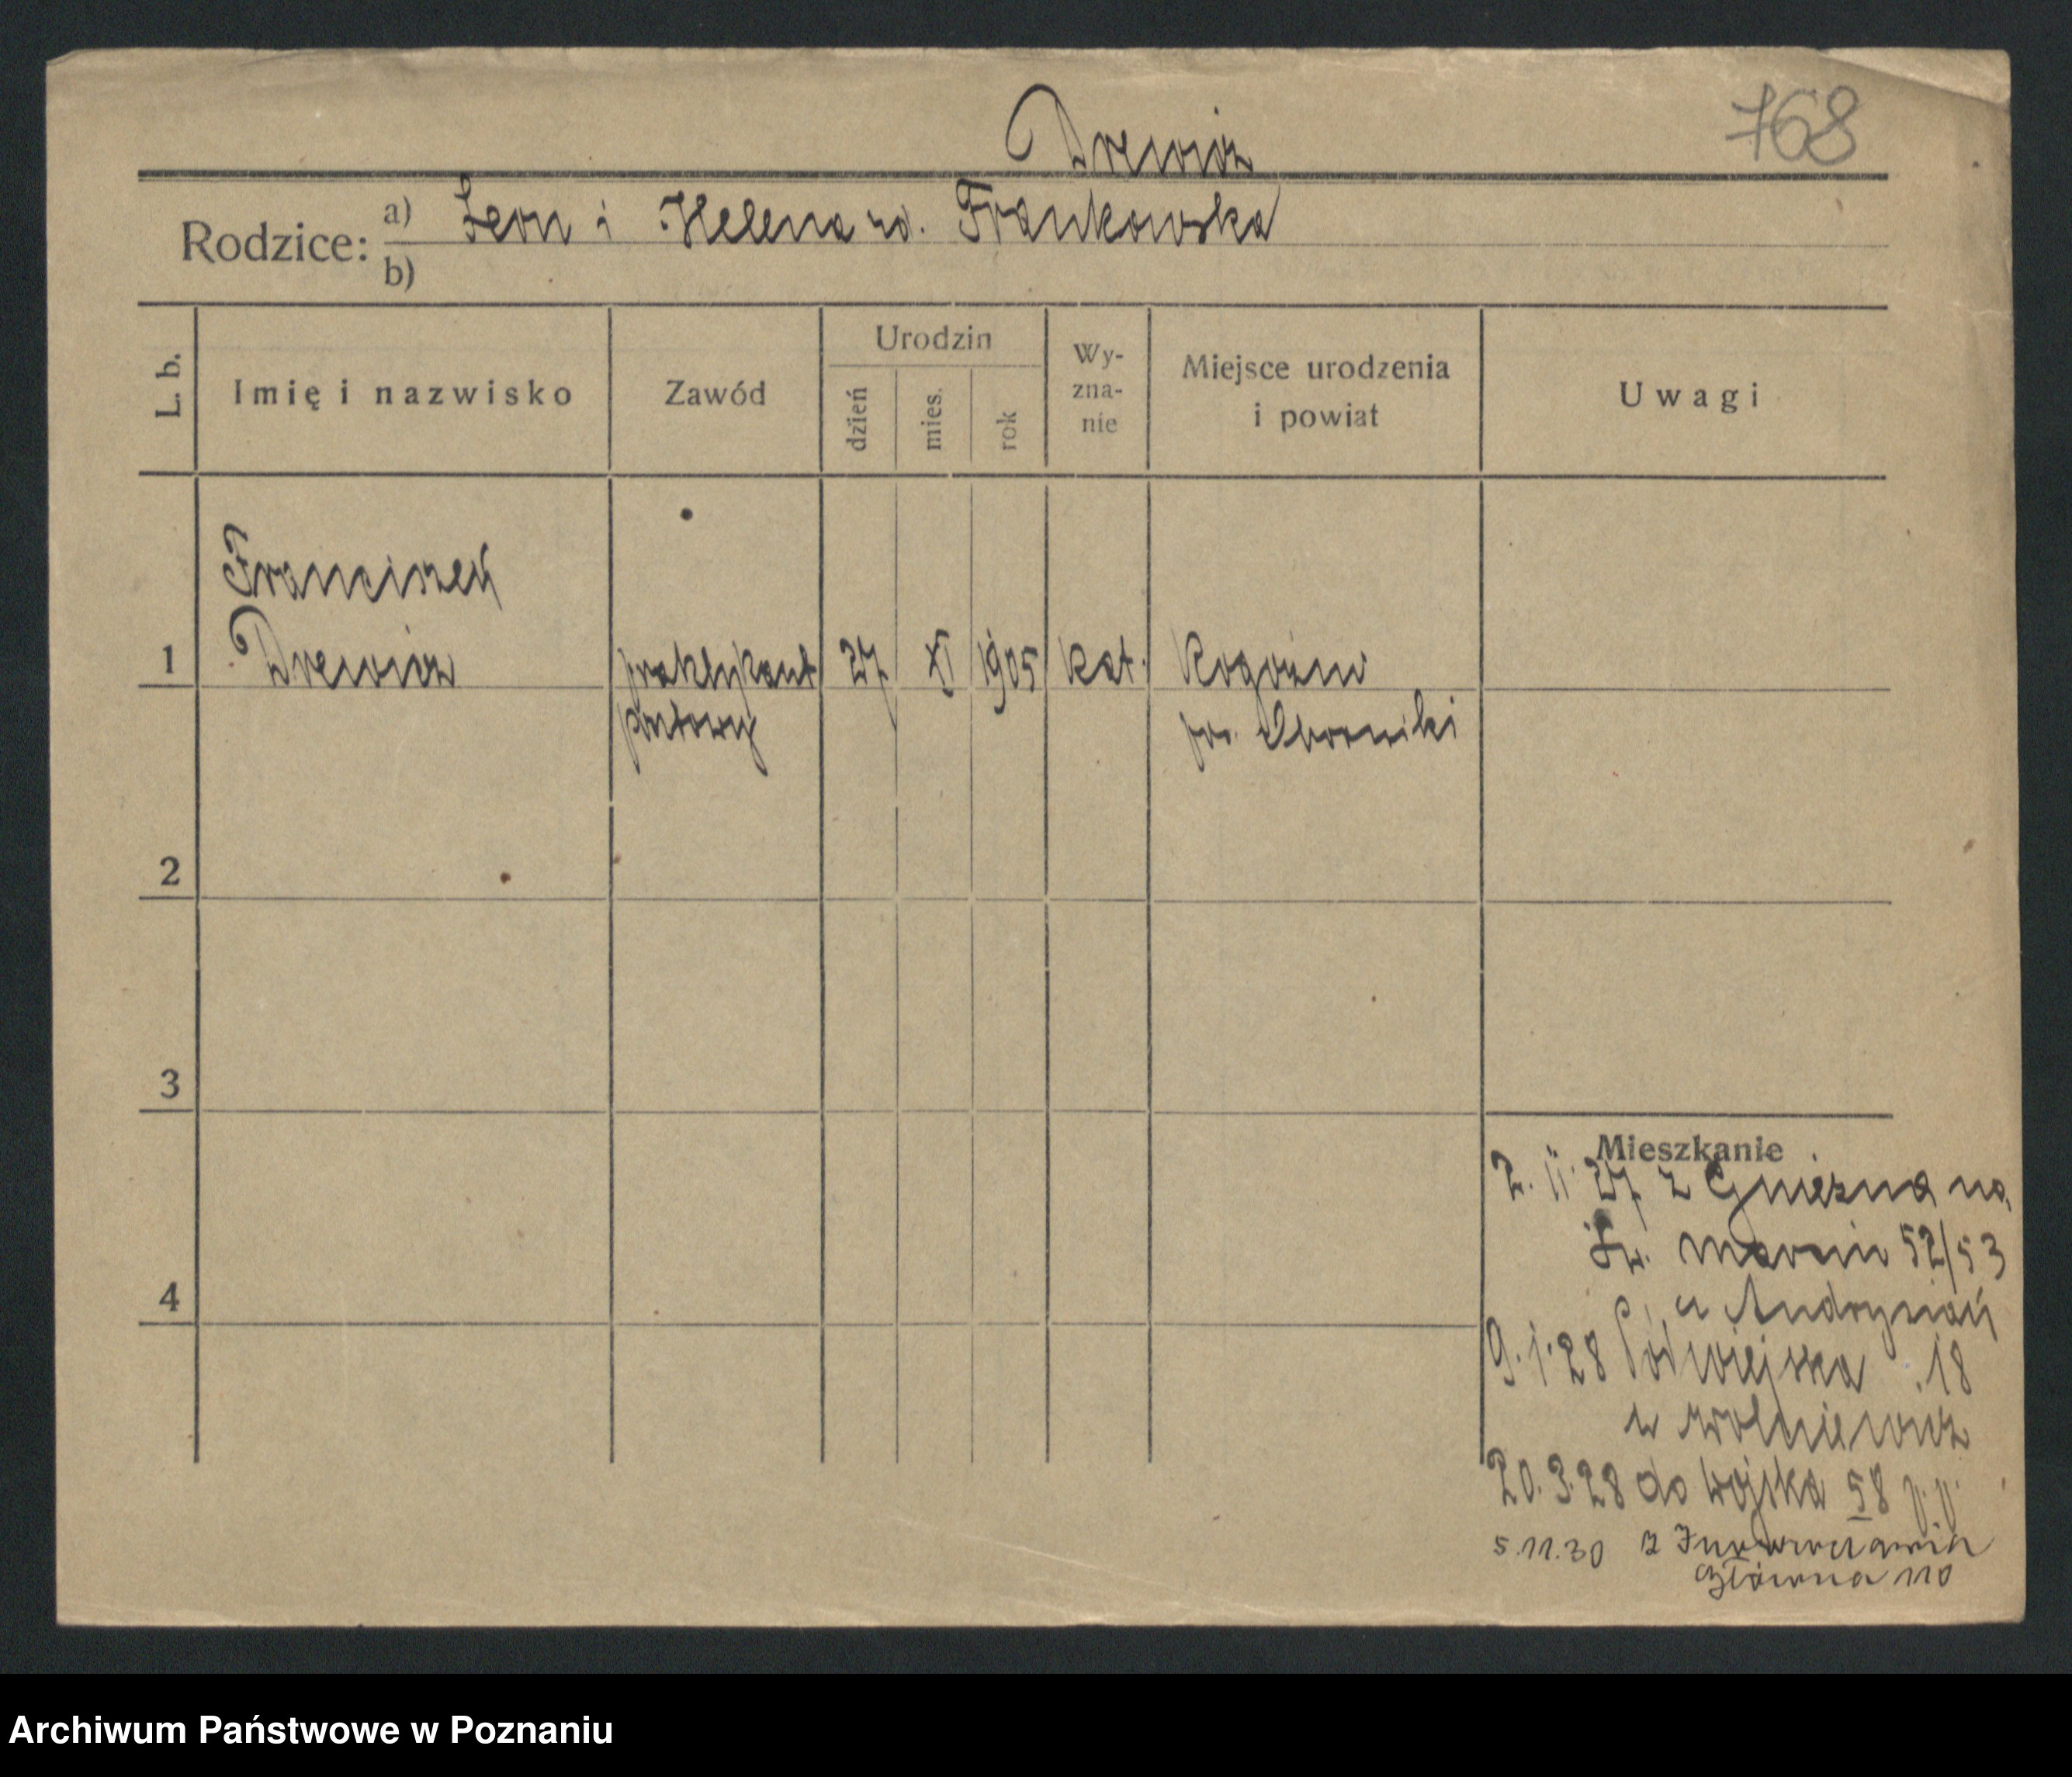 Drewicz
768
Rodzice: a) Leon i Helena rd. Frankowska
b)
L. b.
Imię i nazwisko
Zawód
Urodzin
dzień
mies.
rok
Wy-
zna-
nie
Miejsce urodzenia
i powiat
Uwagi
Franciszek
1 Drewicz praktykant 27 XI 1905 kat. Rogoźno
pocztowy po. Oborniki
2
3
4
Mieszkanie
2. 11. 27 z Gniezna na
Św. Marcin 52/53
u
9. 1. 28 Półwiejska 18
u Wolniewicz
20. 3. 28 do wojska 58 p.p.
5.11.30 z Inowrocławia
Główna 110
Archiwum Państwowe w Poznaniu